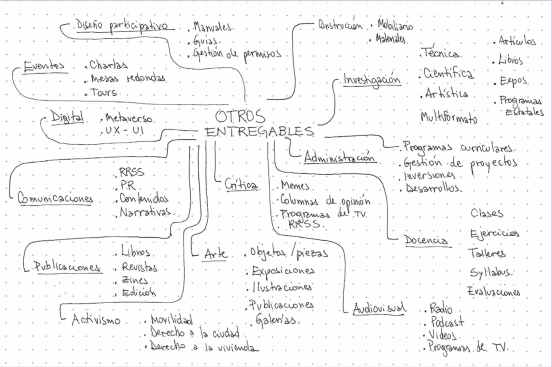 Diseño participativo
. Manuales.
. Guías.
. Gestión de permisos
Construcción
. Mobiliario
. Materiales.
Eventos
. Charlas
. Mesas redondas
. Tours
Investigación
. Técnica.
. Científica
. Artística
Multiformato
. Artículos
. Libros
. Expos.
. Programas estatales
Digital
. Metaverso
. UX - UI
OTROS
ENTREGABLES
Administración
. Programas curriculares.
. Gestión de proyectos
. Inversiones.
. Desarrollos.
Comunicaciones
. RRSS
. PR
. Contenidos
. Narrativas.
Crítica
. Memes
. Columnas de opinión
. Programas de TV.
RRSS.
Docencia
Clases
Ejercicios
Talleres
Syllabus.
Evaluaciones
Publicaciones
. Libros
. Revistas
. Zines
. Edición
Arte
. Objetos / piezas
. Exposiciones
. Ilustraciones
. Publicaciones
. Galerías.
Activismo
. Movilidad
. Derecho a la ciudad
. Derecho a la vivienda
Audiovisual
. Radio
. Podcast
. Videos
. Programas de TV.